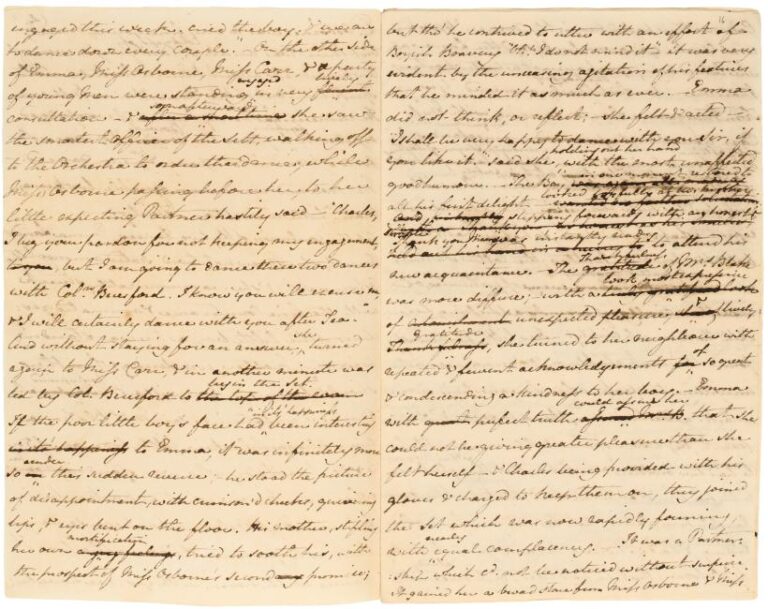 engaged this week. cried the boy, & we are
to dance down every couple." - On the other side
of Emma, Miss Osborne, Miss Carr, & a party
of young Men were standing engaged in very lively
consultation - & soon afterwards after a short time she saw
the smartest officer of the Sett, walking off
to the Orchestra to order the dance, while
Miss Osborne passing before her, to her
little expecting Partner hastily said - "Charles,
I beg your pardon for not keeping my engagement,
to you, but I am going to dance these two dances
with Coln. Beresford. I know you will excuse me
& I will certainly dance with you after Tea."
And without staying for an answer, she turned
again to Miss Carr, & in another minute was
led by Col. Beresford to begin the Set.
If the poor little boy's face had in it's happiness been interesting
to Emma, it was infinitely more
so under this sudden reverse; - he stood the picture
of disappointment, with crimson'd cheeks, quivering
lips, & eyes bent on the floor. His mother, stifling
her own mortification, tried to soothe his, with
the prospect of Miss Osborne's second promise;
but tho' he contrived to utter with an effort of
Boyish Bravery "Oh! I do not mind it" - it was very
evident by the unceasing agitation of his features
that he minded it as much as ever. - Emma
did not think, or reflect; - she felt & acted -
"I shall be very happy to dance with you Sir, if
you like it." said she, holding out her hand with the most unaffected
good humour. - The Boy in one moment restored to
all his first delight - looked joyfully at his Mother
and stepping forwards with an honest &
simple Thank you Maam was instantly ready
to attend his
new acquaintance. - The Thankfulness of Mrs. Blake
was more diffuse; - with a look, most expressive
of unexpected pleasure, & lively
Gratitude, she turned to her neighbour with
repeated & fervent acknowledgements of so great
& condescending a kindness to her boy. - Emma
with perfect truth could assure her that she
could not be giving greater pleasure than she
felt herself - & Charles being provided with his
gloves & charged to keep them on, they joined
the Set which was now rapidly forming,
with nearly equal complacency. - It was a Partner-
ship which cd. not be noticed without surprise.
It gained her a broad stare from Miss Osborne & Miss